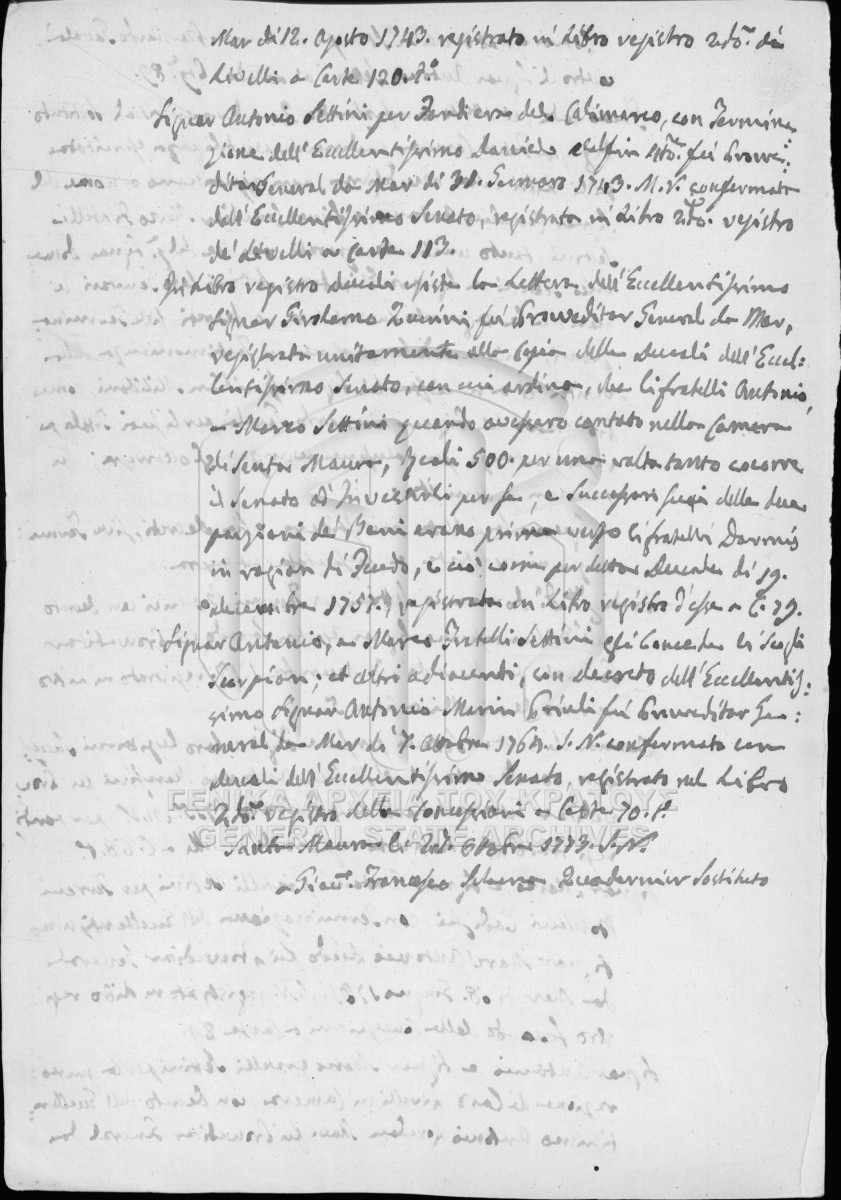 Mar di 12. Agosto 1743. registrato in Libro registro 2do. di
Livelli a Carte 120. to.
Signor Antonio Settini per Fondi era del Calimareo, con Termina:
zione dell'Eccellentissimo Daniele Dolfin 4to. fù Prove:
ditor General da Mar di 31. Gennaro 1743. M.V. confermata
dall'Eccellentissimo Senato, registrata in Libro 2do. registro
de Livelli a Carte 113.
In Libro registro ducali esiste la Lettera dell'Eccellentissimo
Signor Girolamo fù Proveditor General da Mar,
registrata unitamente alla Copia delle Ducali dell'Eccel:
lentissimo Senato, con cui ordina, che li fratelli Antonio,
e Marco Settini quando avessero contato nella Camera
di Santa Maura, Reali 500. per una volta tanto
il Senato d'Investirli per se, e Successori suoi delle due
porzioni de Beni erano prima verso li fratelli Darmis
in ragion di Feudo, e ciò come per detta Ducale di 19.
decembre 1757., registrata in Libro registro d'esse a C. 79.
Signor Antonio, e Marco Fratelli Settini Concede li Scogli
Scorpion; et altri adiacenti, con decreto dell'Eccellentis:
simo Signor Antonio Marin Priuli fù Proveditor Ge:
neral da Mar di 7. Ottobre 1764. S.N. confermato con
ducali dell'Eccellentissimo Senato, registrato nel Libro
2do. registro delle Concessioni a Carte 70. to.
ΓΕΝΙΚΑ ΑΡΧΕΙΑ ΤΟΥ ΚΡΑΤΟΥΣ
GENERAL STATE ARCHIVES
Santa Maura li Ottobre 1773. S.N.
Francesco Quadernier Sostituto